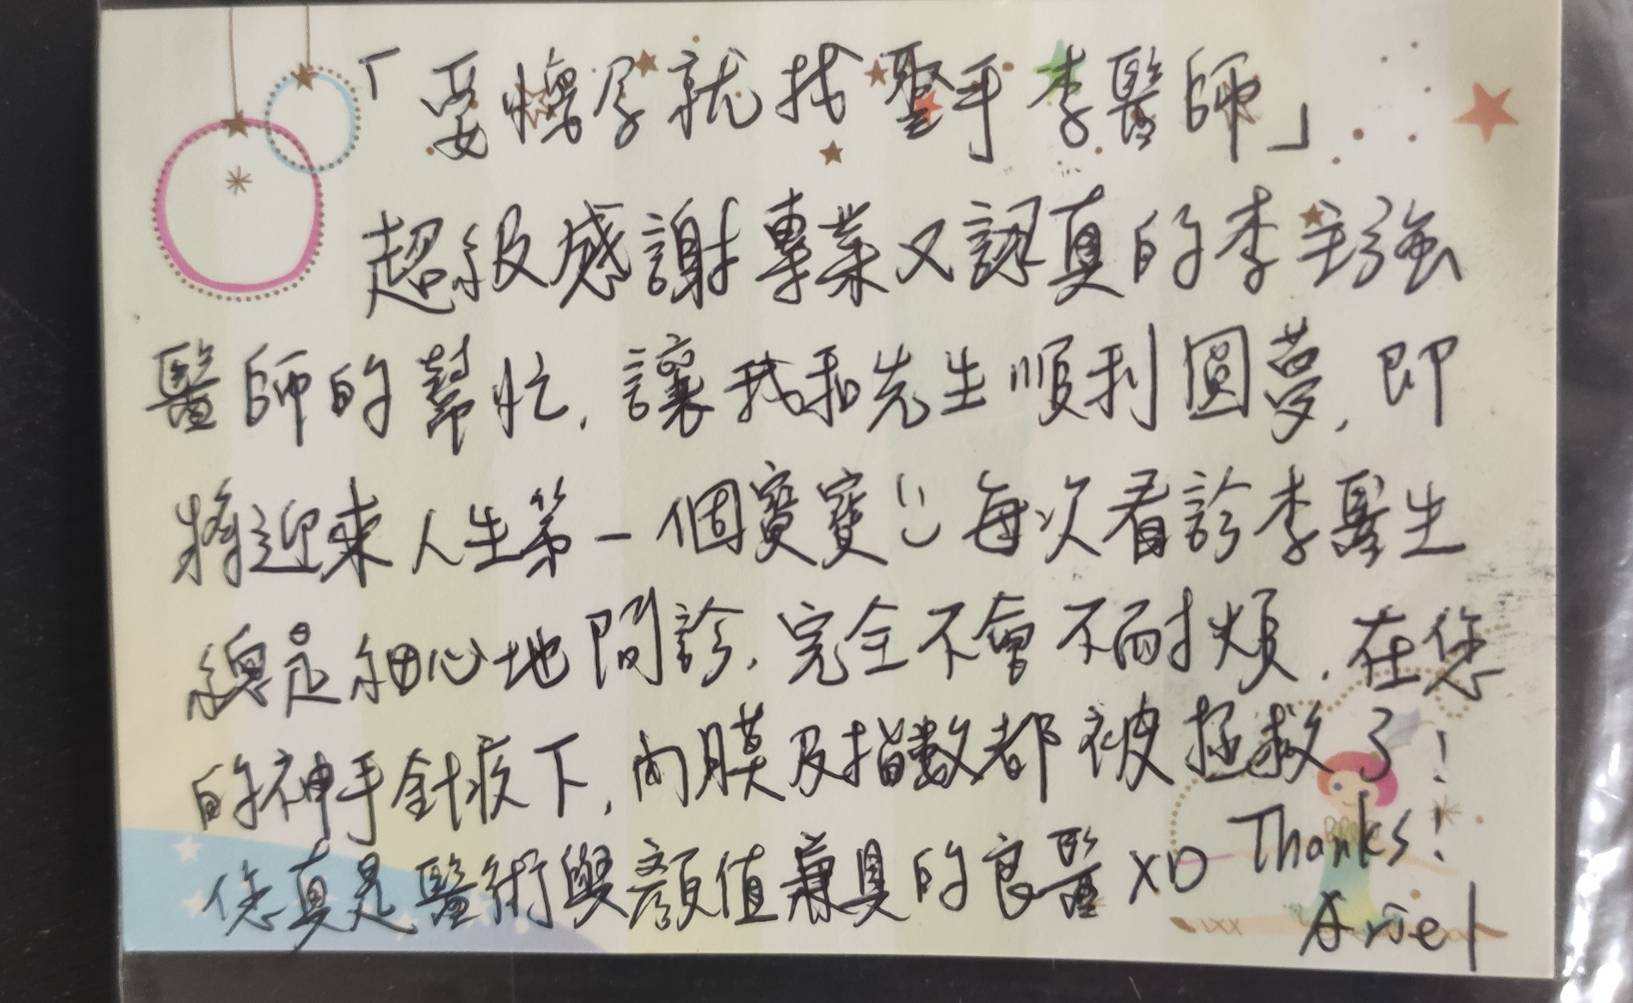 「要懷孕就找聖手李醫師」
超級感謝專業又認真的李主強
醫師的幫忙,讓我和先生順利圓夢,即
將迎來人生第一個寶寶 :) 每次看診李醫生
總是細心地問診,完全不會不耐煩,在您
的神手針疚下,內膜及指數都被拯救了!
您真是醫術與顏值兼具的良醫XD Thanks!
Ariel